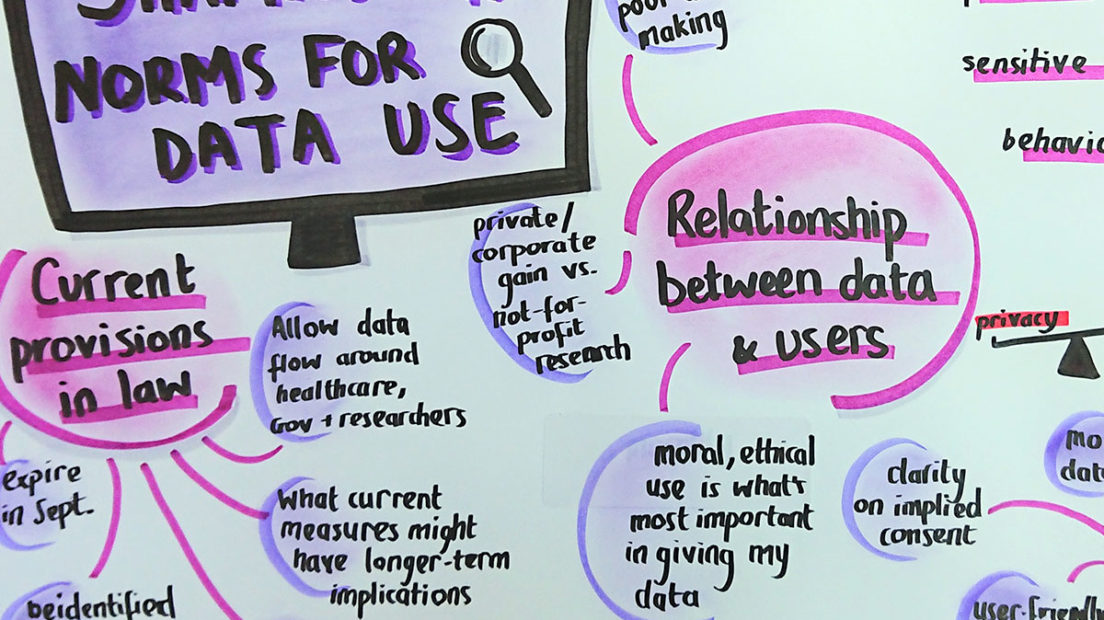 NORMS FOR
DATA USE
making
sensitive
privacy
Relationship
between data
& users
private/
corporate
gain vs.
not-for-
profit
research
Current
provisions
in law
Allow data
flow around
healthcare,
Gov + researchers
expire
in Sept.
What current
measures might
have longer-term
implications
beidentified
moral, ethical
use is what's
most important
in giving my
data
clarity
on implied
consent
user-friendly